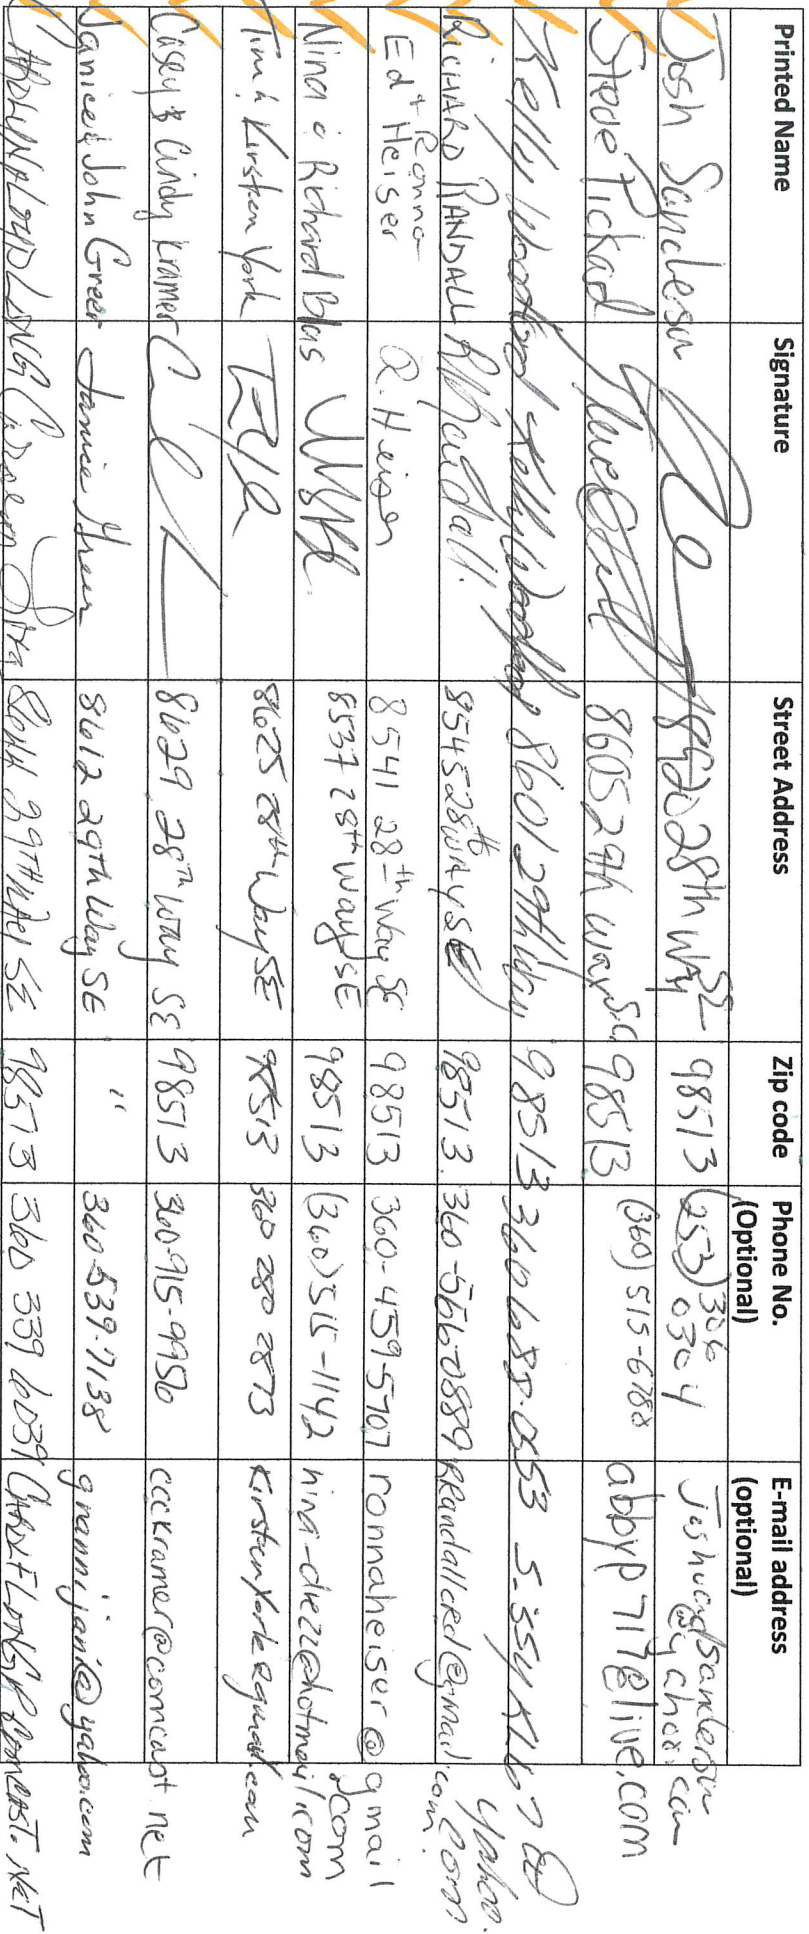 Printed Name Signature Street Address Zip code Phone No. (Optional) E-mail address (optional)
Josh Sanderson 8520 28th Way SE 98513 (253) 306 0304 @yahoo.com
Steve Pickard 8605 29th Way SE 98513 (360) 515-6788 abbyp717@live.com
Kelly Woodford Kelly Woodford 8601 29th Way 98513 360 688-0553 yahoo.com
RICHARD RANDALL RRandall. 8545 28th WAY SE 98513 360-566-0889 RRandallcrd@gmail.com
Ed + Ronna Heiser R. Heiser 8541 28th Way SE 98513 360-459-5907 ronnaheiser@gmail.com
Nina & Richard Blas 8537 28th Way SE 98513 (360) 515-1142 nina-diezz@hotmail.com
Tim & Kirsten York 8625 28th Way SE 98513 360 280 2873 KirstenYork@gmail.com
Casey & Cindy Kramer 8629 28th Way SE 98513 360-915-9956 ccckramer@comcast.net
Janice & John Greer Janice Greer 8612 29th Way SE " 360-539-7138 grannijani@yahoo.com
LONG 8614 29TH WAY SE 98513 360 339 6039 COMCAST.NET